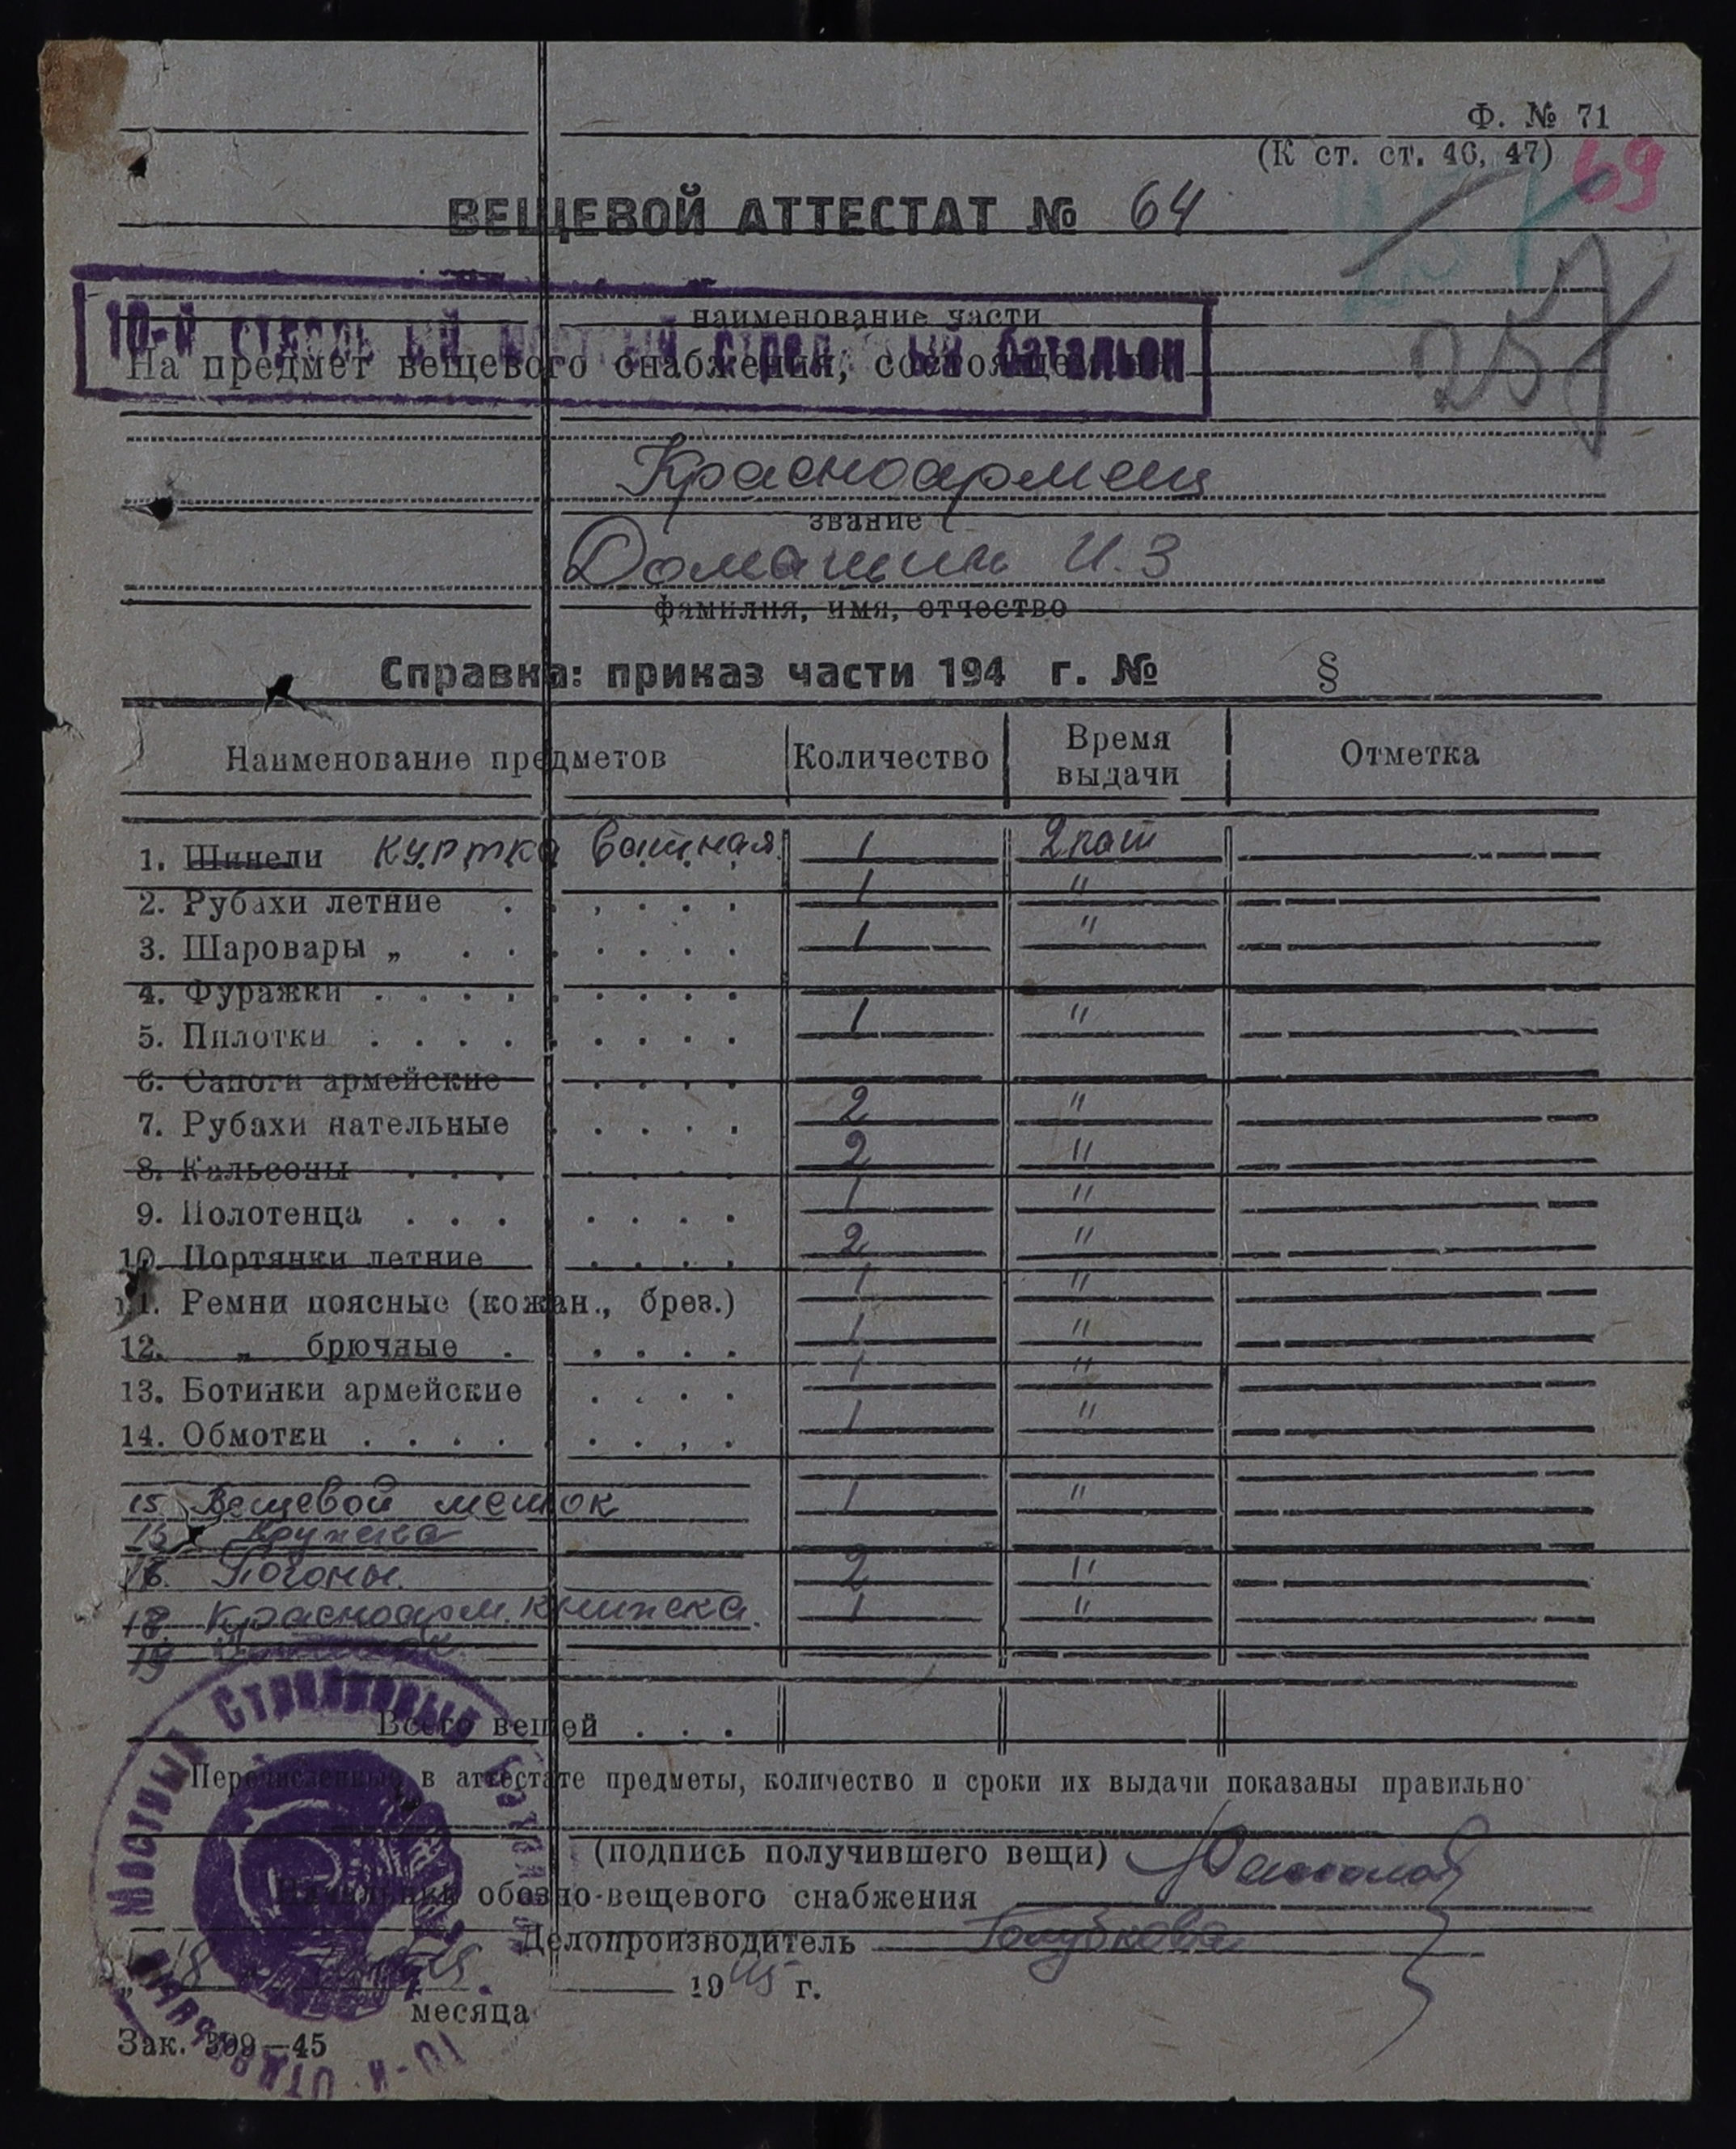 Ф. № 71
(К ст. ст. 46, 47) 69
ВЕЩЕВОЙ АТТЕСТАТ № 64
257
наименование части
10-й батальон
На предмет вещевого снабжения, состоящего
Красноармеец
звание
Домашин И.З
фамилия, имя, отчество
Справка: приказ части 194 г. № §
Наименование предметов Количество Время выдачи Отметка
1. Шинели куртка ватная 1 2 кат
2. Рубахи летние 1 "
3. Шаровары „ 1 "
4. Фуражки
5. Пилотки 1 "
6. Сапоги армейские
7. Рубахи нательные 2 "
8. Кальсоны 2 "
9. Полотенца 1 "
10. Портянки летние 2 "
11. Ремни поясные (кожан., брез.) 1 "
12. „ брючные 1 "
13. Ботинки армейские 1 "
14. Обмотки 1 "
15 Вещевой мешок 1 "
Кружка
Погоны 2 "
Красноарм. книжка 1 "
19
Всего вещей
Перечисленные в аттестате предметы, количество и сроки их выдачи показаны правильно
(подпись получившего вещи)
Начальник обозно-вещевого снабжения
Делопроизводитель Голубкова
„ 18 1945 г.
месяца
Зак. 399—45
Мостовый Стрелковый Батальон
10-й Отдельный